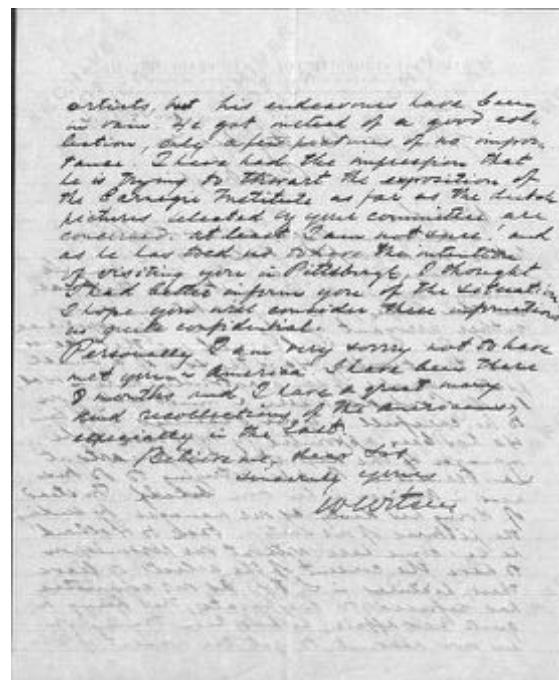 artists, but his endeavours have been
in vain. He got instead of a good col-
lection, only a few pictures of no impor-
tance. I have had the impression that
he is trying to thwart the exposition of
the Carnegie Institute as far as the dutch
pictures, selected by your committee are
concerned. At least I am not sure, and
as he has told me to have the intention
of visiting you in Pittsburgh, I thought
I had better inform you of the situation
I hope you will consider these informations
as quite confidential.
Personally I am very sorry not to have
met you in America. I have been there
8 months and, I have a great many
kind recollections, of the Americans,
especially in the East.
Believe me, dear Sir
sincerely yours